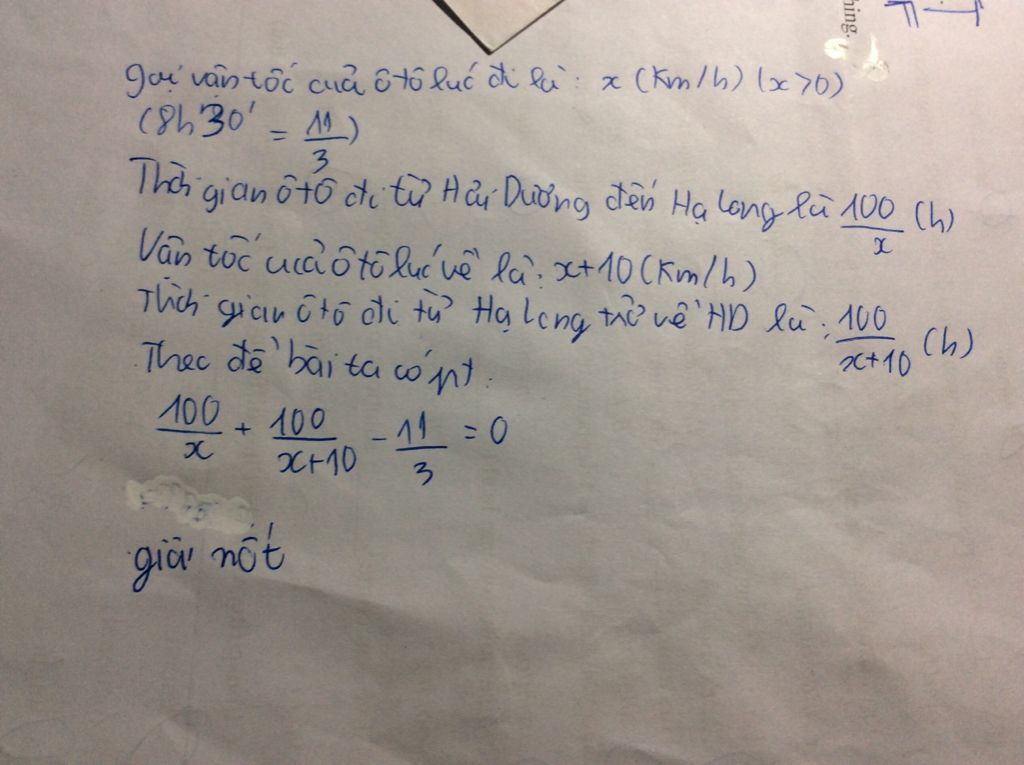 hing.
gọi vận tốc của ô tô lúc đi là: x (Km/h) (x>0)
(8h30' = 11/3)
Thời gian ô tô đi từ Hải Dương đến Hạ Long là 100/x (h)
Vận tốc của ô tô lúc về là: x+10 (Km/h)
Thời gian ô tô đi từ Hạ Long trở về HD là: 100/x+10 (h)
Theo đề bài ta có pt:
100/x + 100/x+10 - 11/3 = 0
giải nốt